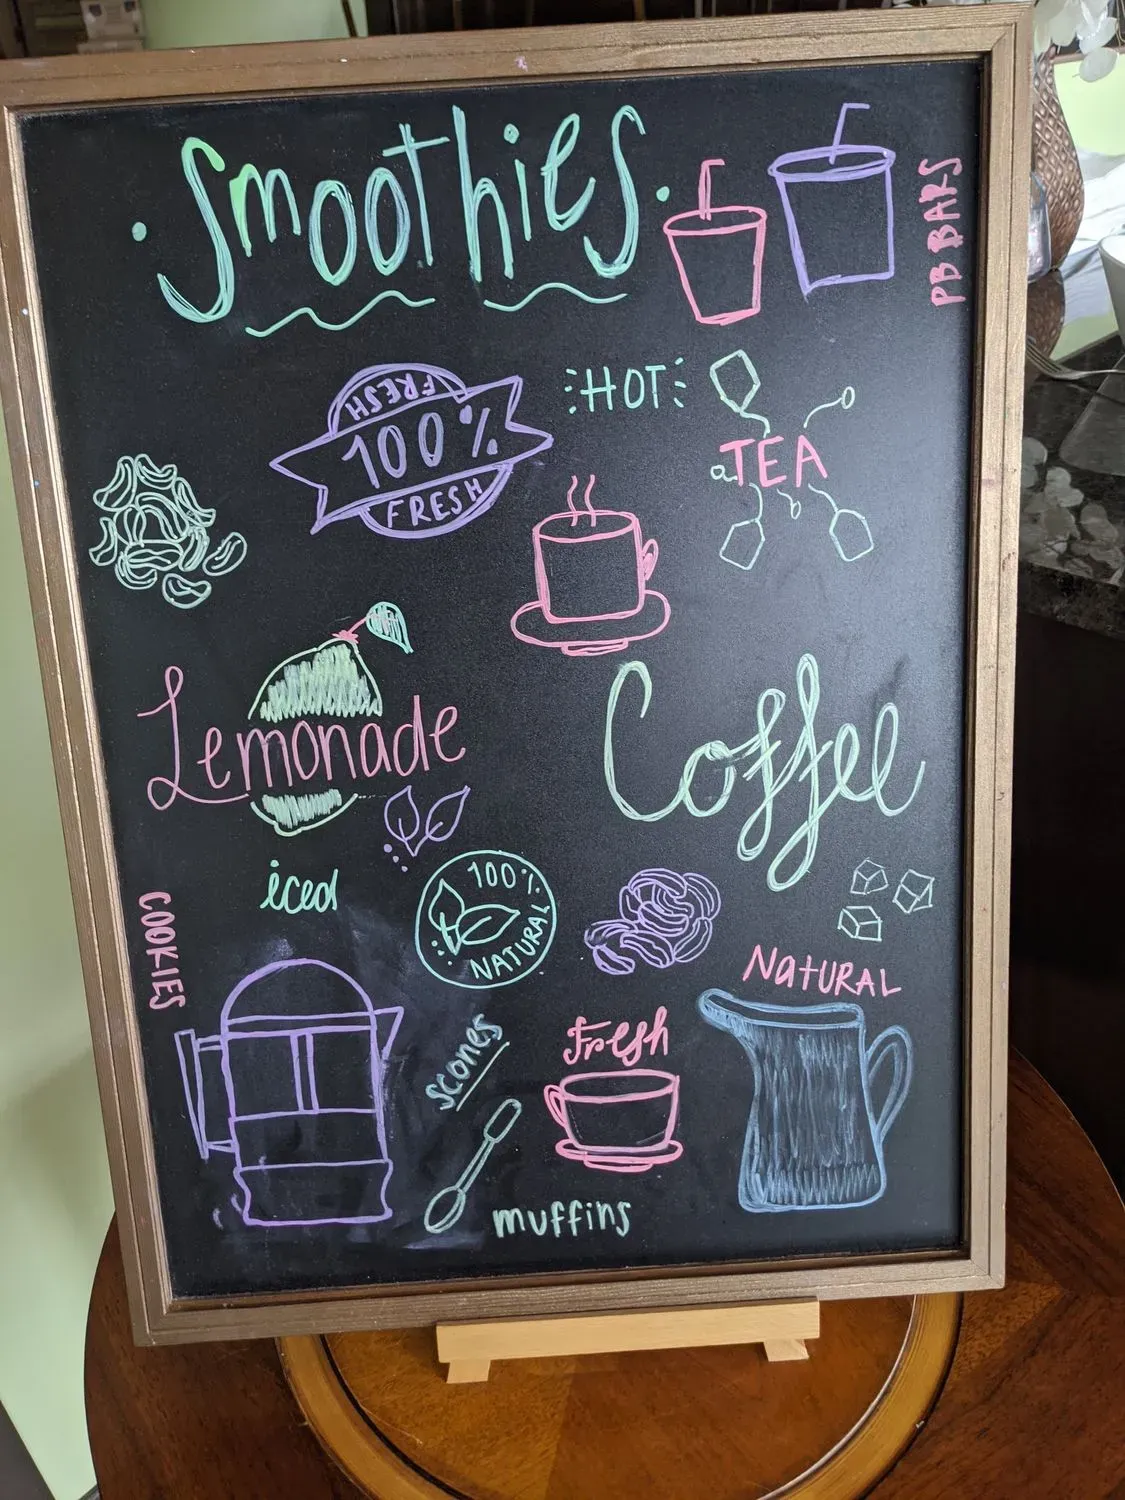 Smoothies
PB BARS
FRESH
100%
FRESH
HOT
TEA
Lemonade
Coffee
iced
100%
NATURAL
COOKIES
NATURAL
scones
Fresh
muffins